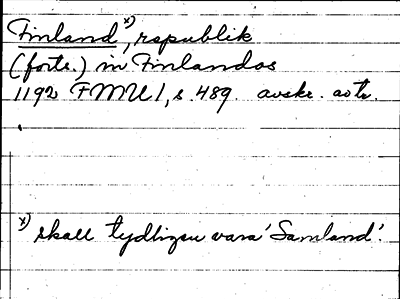 Finland x), republik
(forts.) in Finlandos
1192 FMU I, s. 489. avskr. avtr.
x) skall tydligen vara 'Samland'.